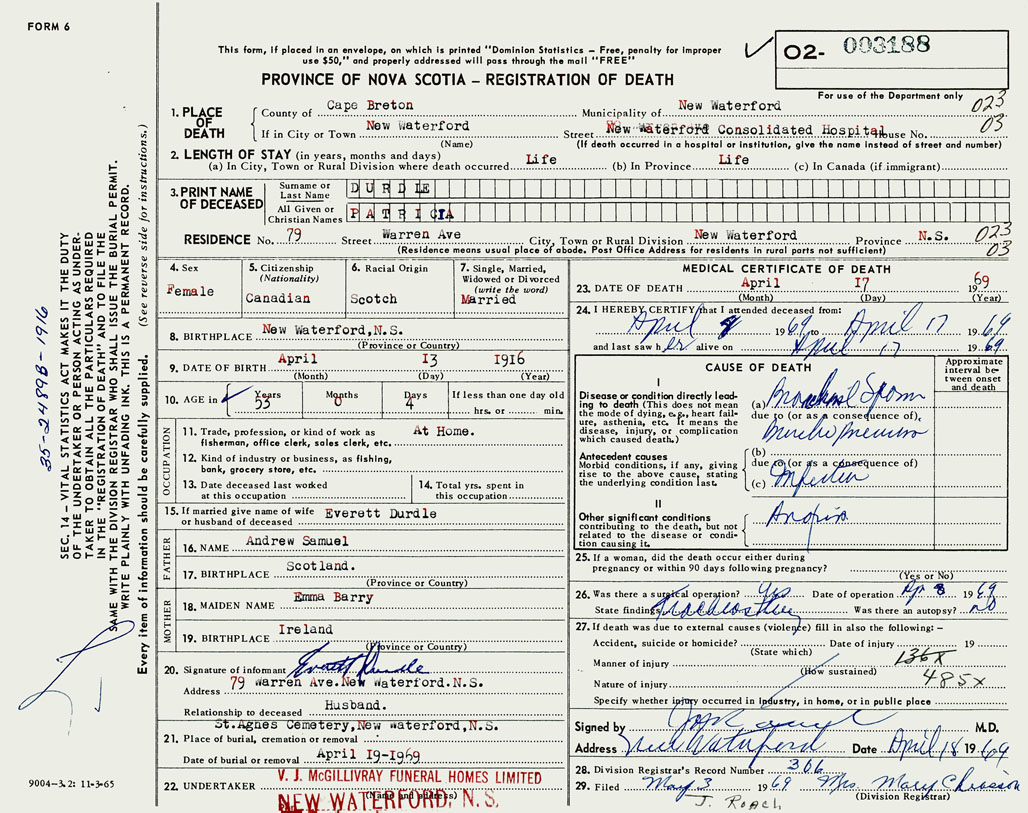 FORM 6
This form, if placed in an envelope, on which is printed "Dominion Statistics – Free, penalty for improper
use $50," and properly addressed will pass through the mail "FREE"
PROVINCE OF NOVA SCOTIA – REGISTRATION OF DEATH
02- 003188
For use of the Department only
1. PLACE OF DEATH
County of Cape Breton Municipality of New Waterford 023
If in City or Town New Waterford Street New Waterford Consolidated Hospital House No. 03
(Name) (If death occurred in a hospital or institution, give the name instead of street and number)
2. LENGTH OF STAY (in years, months and days)
(a) In City, Town or Rural Division where death occurred Life (b) In Province Life (c) In Canada (if immigrant)
3. PRINT NAME OF DECEASED
Surname or Last Name DURDLE
All Given or Christian Names PATRICIA
RESIDENCE No. 79 Street Warren Ave City, Town or Rural Division New Waterford Province N.S. 023
(Residence means usual place of abode. Post Office Address for residents in rural parts not sufficient) 03
4. Sex
Female
5. Citizenship
(Nationality)
Canadian
6. Racial Origin
Scotch
7. Single, Married,
Widowed or Divorced
(write the word)
Married
8. BIRTHPLACE New Waterford, N.S.
(Province or Country)
9. DATE OF BIRTH April 13 1916
(Month) (Day) (Year)
10. AGE in Years Months Days If less than one day old
53 0 4 hrs. or min.
OCCUPATION
11. Trade, profession, or kind of work as At Home.
fisherman, office clerk, sales clerk, etc.
12. Kind of industry or business, as fishing,
bank, grocery store, etc.
13. Date deceased last worked
at this occupation
14. Total yrs. spent in
this occupation
15. If married give name of wife
or husband of deceased Everett Durdle
FATHER
16. NAME Andrew Samuel
17. BIRTHPLACE Scotland.
(Province or Country)
MOTHER
18. MAIDEN NAME Emma Barry
19. BIRTHPLACE Ireland
(Province or Country)
20. Signature of informant Everett Durdle
Address 79 Warren Ave. New Waterford. N.S.
Relationship to deceased Husband.
St. Agnes Cemetery, New Waterford, N.S.
21. Place of burial, cremation or removal
Date of burial or removal April 19-1969
22. UNDERTAKER V. J. McGILLIVRAY FUNERAL HOMES LIMITED
(Name and address)
NEW WATERFORD, N. S.
MEDICAL CERTIFICATE OF DEATH
23. DATE OF DEATH April 17 1969
(Month) (Day) (Year)
24. I HEREBY CERTIFY that I attended deceased from:
April 8 1969 to April 17 1969
and last saw her alive on April 17 1969
CAUSE OF DEATH
Approximate interval between onset and death
I
Disease or condition directly leading
to death (This does not mean
the mode of dying, e.g., heart failure,
asthenia, etc. It means the
disease, injury, or complication
which caused death.)
(a) Bronchial Spasm
due to (or as a consequence of),
Broncho pneumonia
Antecedent causes
Morbid conditions, if any, giving
rise to the above cause, stating
the underlying condition last.
(b)
due to (or as a consequence of)
(c) Infection
II
Other significant conditions
contributing to the death, but not
related to the disease or condition
causing it.
25. If a woman, did the death occur either during
pregnancy or within 90 days following pregnancy?
(Yes or No)
26. Was there a surgical operation? Yes Date of operation Apr 8 1969
State findings Tracheostomy Was there an autopsy? no
27. If death was due to external causes (violence) fill in also the following: –
Accident, suicide or homicide? Date of injury 19
(State which)
Manner of injury 136X
(How sustained)
Nature of injury 485X
Specify whether injury occurred in Industry, in home, or in public place
Signed by M.D.
Address New Waterford Date April 18 1969
28. Division Registrar's Record Number 306
29. Filed May 3 1969 Mrs. Mary Chiasson
(Division Registrar)
J. Roach
35-2489B-1916
SEC. 14 – VITAL STATISTICS ACT MAKES IT THE DUTY
OF THE UNDERTAKER OR PERSON ACTING AS UNDER-
TAKER TO OBTAIN ALL THE PARTICULARS REQUIRED
IN THE "REGISTRATION OF DEATH" AND TO FILE THE
SAME WITH THE DIVISION REGISTRAR WHO SHALL ISSUE THE BURIAL PERMIT.
WRITE PLAINLY WITH UNFADING INK. THIS IS A PERMANENT RECORD.
Every item of information should be carefully supplied. (See reverse side for instructions.)
9004-3.2: 11-3-65